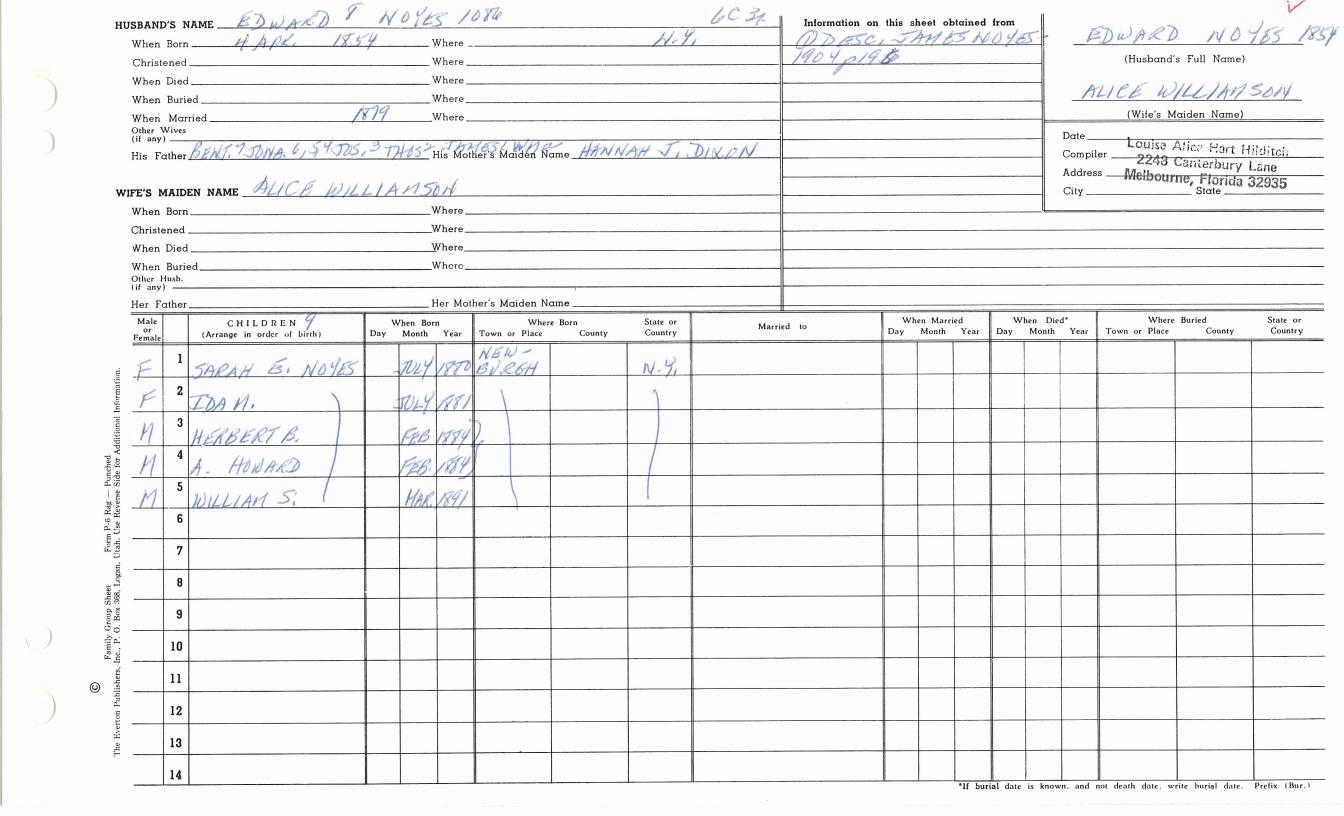 HUSBAND'S NAME EDWARD 8 NOYES 1086 6C32
When Born 4 APR. 1854 Where N.Y.
Christened Where
When Died Where
When Buried Where
When Married 1879 Where
Other Wives
(if any)
His Father BENJ.7 JONA. 6,5,4 JOS.3 THOS2 JAMES His Mother's Maiden Name HANNAH J. DIXON
WIFE'S MAIDEN NAME ALICE WILLIAMSON
When Born Where
Christened Where
When Died Where
When Buried Where
Other Husb.
(if any)
Her Father Her Mother's Maiden Name
Information on this sheet obtained from
① DESC. JAMES NOYES -
1904 p
EDWARD NOYES 1854
(Husband's Full Name)
ALICE WILLIAMSON
(Wife's Maiden Name)
Date
Compiler Louise Alice Hart Hilditch
Address 2243 Canterbury Lane
Melbourne, Florida 32935
City State
Male or Female CHILDREN 9 (Arrange in order of birth) When Born Day Month Year Where Born Town or Place County State or Country Married to When Married Day Month Year When Died* Day Month Year Where Buried Town or Place County State or Country
F 1 SARAH E. NOYES JULY 1880 NEW-BURGH N.Y.
F 2 IDA M. JULY 1881
M 3 HERBERT B. FEB 1884
M 4 A. HOWARD FEB. 1884
M 5 WILLIAM S. MAR. 1891
6
7
8
9
10
11
12
13
14
*If burial date is known, and not death date, write burial date. Prefix (Bur.)
© Family Group Sheet Form P-6 Rag — Punched
The Everton Publishers, Inc., P. O. Box 368, Logan, Utah. Use Reverse Side for Additional Information.